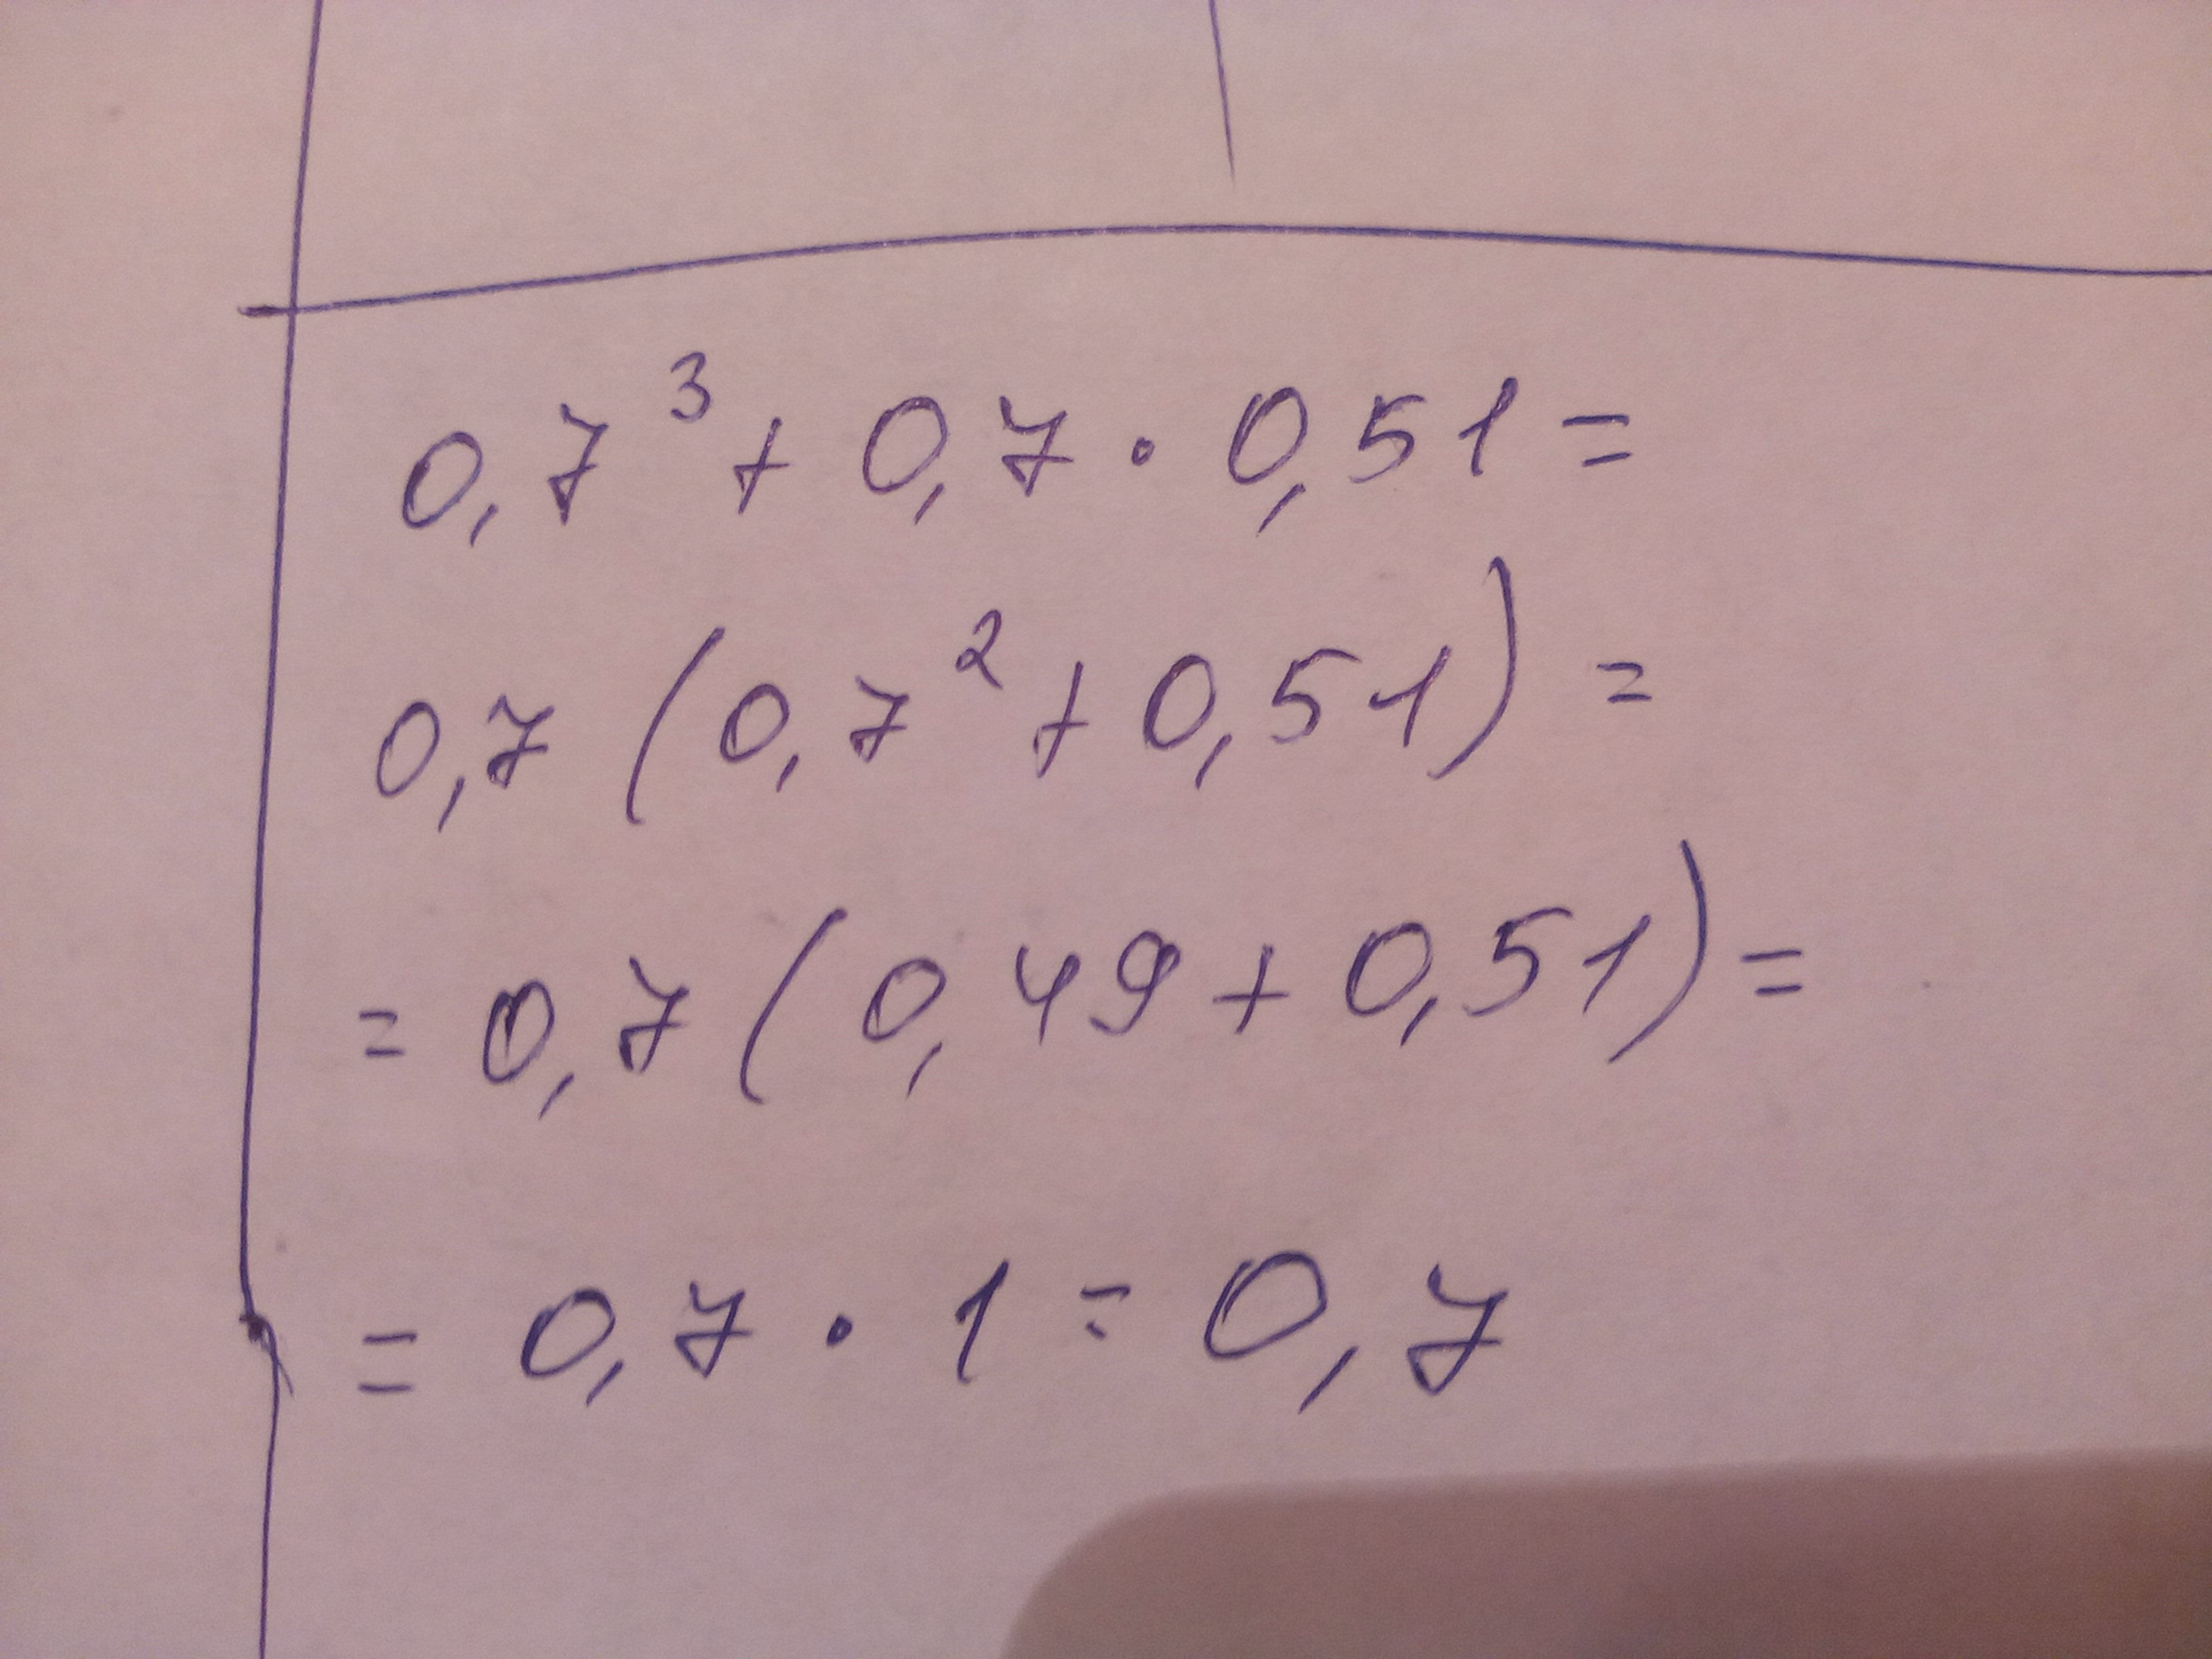 0,7³ + 0,7 · 0,51 =
0,7 (0,7² + 0,51) =
= 0,7 (0,49 + 0,51) =
= 0,7 · 1 = 0,7